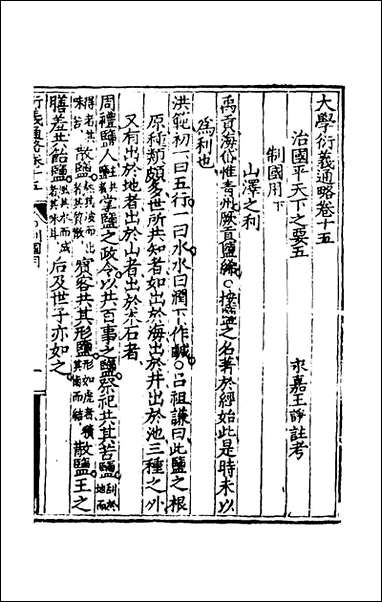 大學衍義通略卷十五
治國平天下之要五　永嘉王諍註考
制國用下
山澤之利
禹貢海岱惟青州厥貢鹽絺○按鹽之名著於經始此是時未以
為利也
洪範初一曰五行一曰水水曰潤下作鹹○呂祖謙曰此鹽之根
原種類頗多世所共知者如出於海出於井出於池三種之外
又有出於地者出於山者出於木石者
周禮鹽人掌鹽之政令以共百事之鹽祭祀共其苦鹽
散鹽賓客共其形鹽形如虎者散鹽王之
膳羞共飴鹽后及世子亦如之